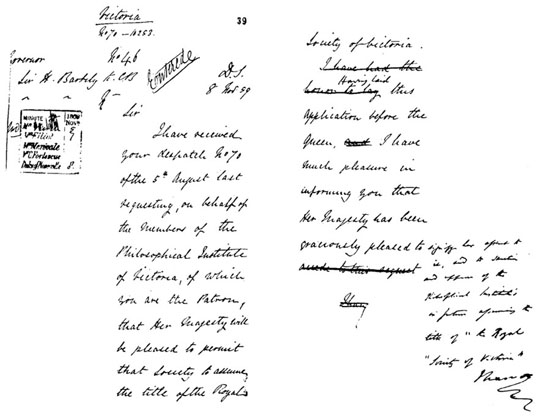 Victoria
39
No 70 – 10253
Governor
No 46
Sir H. Barkly K.C.B
D.S.
8 Nov 59
Sir
I have received
your despatch No 70
of the 5th August last
requesting, on behalf of
the Members of the
Philosophical Institute
of Victoria, of which
you are the Patron,
that Her Majesty will
be pleased to permit
that Society to assume
the title of the Royal
MINUTE
Mr Elliot
Mr Merivale
Mr Fortescue
Duke of Newcastle 8
Society of Victoria.
I have had the
Having laid
honor to lay this
application before the
Queen, and I have
much pleasure in
informing you that
Her Majesty has been
graciously pleased to signify her assent to
accede to this request
it, and to sanction
and approve of the
Philosophical Institute's
in future assuming the
title of "the Royal
"Society of Victoria"